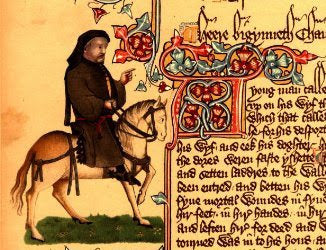 Heere bigynneth Chau
A yong man called
vp on his wyf
which that calle
he for his despor
his wyf / and eek his doghter / h
the dores weren faste yshette
and setten laddres to the walle
been entred / and betten his wy
fyue mortal woundes in fyue
hir feet / in hir handes / in hir
and leften hir for deed / and w
torned was in to his hous / an